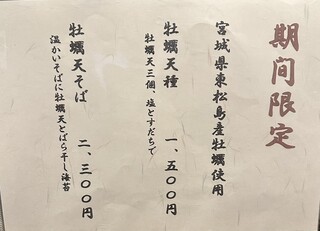 期間限定
宮城県東松島産牡蠣使用
牡蠣天種　一、五〇〇円
牡蠣天三個、塩とすだちで
牡蠣天そば　二、三〇〇円
温かいそばに牡蠣天とばら干し海苔